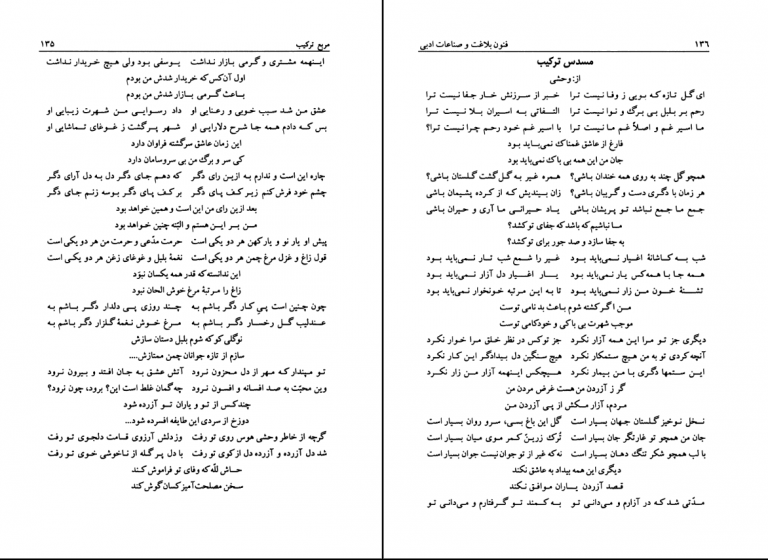 ۱۳۵ مربع ترکیب
اینهمه مشتری و گرمی بازار نداشت یوسفی بود ولی هیچ خریدار نداشت
اول آن‌کس که خریدار شدش من بودم
باعث گرمی بازار شدش من بودم
عشق من شد سبب خوبی و رعنایی او داد رسوایی من شهرت زیبایی او
بس که دادم همه جا شرح دلارایی او شهر پرگشت ز غوغای تماشایی او
این زمان عاشق سرگشته فراوان دارد
کی سر و برگ من بی سروسامان دارد
چاره این است و ندارم به ازین رای دگر که دهم جای دگر دل به دل آرای دگر
چشم خود فرش کنم زیر کف پای دگر بر کف پای دگر بوسه زنم جای دگر
بعد ازین رای من این است و همین خواهد بود
من بر این هستم و البّته چنین خواهد بود
پیش او یار نو و یار کهن هر دو یکی است حرمت مدّعی و حرمت من هر دو یکی است
قول زاغ و غزل مرغ چمن هر دو یکی است نغمهٔ بلبل و غوغای زغن هر دو یکی است
این ندانسته که قدر همه یکسان نبوَد
زاغ را مرتبهٔ مرغ خوش الحان نبود
چون چنین است پی کار دگر باشم به چند روزی پی دلدار دگر باشم به
عندلیب گل رخسار دگر باشم به مرغ خوش نغمهٔ گلزار دگر باشم به
نوگلی کو که شوم بلبل دستان سازش
سازم از تازه جوانان چمن ممتازش....
تو مپندار که مهر از دل محزون نرود آتش عشق به جان افتد و بیرون نرود
وین محبّت به صد افسانه و افسون نرود چه گمان غلط است این؟ برود، چون نرود؟
چندکس از تو و یاران تو آزرده شود
دوزخ از سردی این طایفه افسرده شود...
گرچه از خاطر وحشی هوس روی تو رفت وز دلش آرزوی قامت دلجوی تو رفت
شد دل آزرده و آزرده دل از کوی تو رفت با دل پر گله از ناخوشی خوی تو رفت
حاش للّه که وفای تو فراموش کند
سخن مصلحت‌آمیز کسان گوش کند
۱۳۶ فنون بلاغت و صناعات ادبی
مسدس ترکیب
از: وحشی
ای گل تازه که بویی ز وفا نیست ترا خبر از سرزنش خار جفا نیست ترا
رحم بر بلبل بی برگ و نوا نیست ترا التفاتی به اسیران بلا نیست ترا
ما اسیر غم و اصلاً غم ما نیست ترا با اسیر غم خود رحم چرا نیست ترا؟
فارغ از عاشق غمناک نمی‌باید بود
جان من این همه بی باک نمی‌باید بود
همچو گل چند به روی همه خندان باشی؟ همره غیر به گل‌گشت گلستان باشی؟
هر زمان با دگری دست و گریبان باشی؟ زان بیندیش که از کرده پشیمان باشی
جمع ما جمع نباشد تو پریشان باشی یاد حیرانی ما آری و حیران باشی
ما نباشیم که باشد که جفای تو کشد؟
به جفا سازد و صد جور برای تو کشد؟
شب به کاشانهٔ اغیار نمی‌باید بود غیر را شمع شب تار نمی‌باید بود
همه جا با همه‌کس یار نمی‌باید بود یار اغیار دل آزار نمی‌باید بود
تشنهٔ خون من زار نمی‌باید بود تا به این مرتبه خونخوار نمی‌باید بود
من اگر کشته شوم باعث بد نامی توست
موجب شهرت بی باکی و خودکامی توست
دیگری جز تو مرا این همه آزار نکرد جز توکس در نظر خلق مرا خوار نکرد
آنچه کردی تو به من هیچ ستمکار نکرد هیچ سنگین دل بیدادگر این کار نکرد
این ستمها دگری با من بیمار نکرد هیچکس اینهمه آزار من زار نکرد
گر ز آزردن من هست غرض مردن من
مردم، آزار مکش از پی آزردن من
نخل نوخیز گلستان جهان بسیار است گل این باغ بسی، سرو روان بسیار است
جان من همچو تو غارتگر جان بسیار است تُرک زرّین کمر موی میان بسیار است
با لب همچو شکر تنگ دهان بسیار است نه که غیر از تو جوان نیست جوان بسیار است
دیگری این همه بیداد به عاشق نکند
قصد آزردن یاران موافق نکند
مدّتی شد که در آزارم و می‌دانی تو به کمند تو گرفتارم و می‌دانی تو